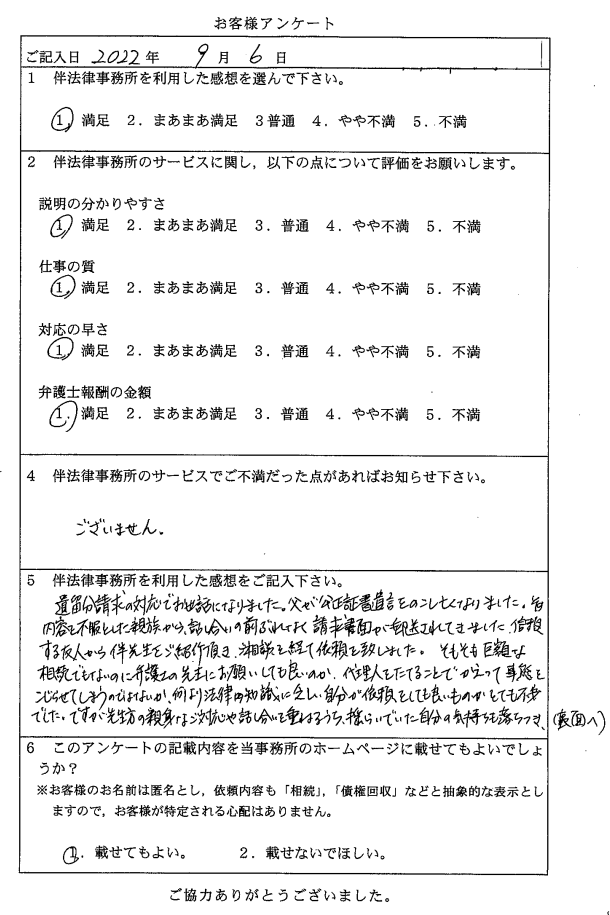 お客様アンケート
ご記入日 2022年 9月 6日
1 伴法律事務所を利用した感想を選んで下さい。
1. 満足 2.まあまあ満足 3普通 4.やや不満 5.不満
2 伴法律事務所のサービスに関し,以下の点について評価をお願いします。
説明の分かりやすさ
1. 満足 2.まあまあ満足 3.普通 4.やや不満 5.不満
仕事の質
1. 満足 2.まあまあ満足 3.普通 4.やや不満 5.不満
対応の早さ
1. 満足 2.まあまあ満足 3.普通 4.やや不満 5.不満
弁護士報酬の金額
1. 満足 2.まあまあ満足 3.普通 4.やや不満 5.不満
4 伴法律事務所のサービスでご不満だった点があればお知らせ下さい。
ございません。
5 伴法律事務所を利用した感想をご記入下さい。
遺留分請求の対応でお世話になりました。父が公正証書遺言をのこし亡くなりました。
内容を不服とした親族から、話し合いの前ぶれもなく請求書面が郵送されてきました。信頼
する友人から伴先生をご紹介頂き、ご相談を経て依頼を致しました。そもそも巨額な
相続でもないのに弁護士の先生にお願いしても良いのか、代理人をたてることでかえって事態を
こじらせてしまうのではないか、何より法律的知識に乏しい自分が依頼をしても良いものかとても不安
でした。ですが先生方の親身なご対応や話し合いを重ねるうち、揺らいでいた自分の気持ちも落ちつき、(裏面へ)
6 このアンケートの記載内容を当事務所のホームページに載せてもよいでしょ
うか?
※お客様のお名前は匿名とし,依頼内容も「相続」,「債権回収」などと抽象的な表示とし
ますので,お客様が特定される心配はありません。
1. 載せてもよい。 2.載せないでほしい。
ご協力ありがとうございました。